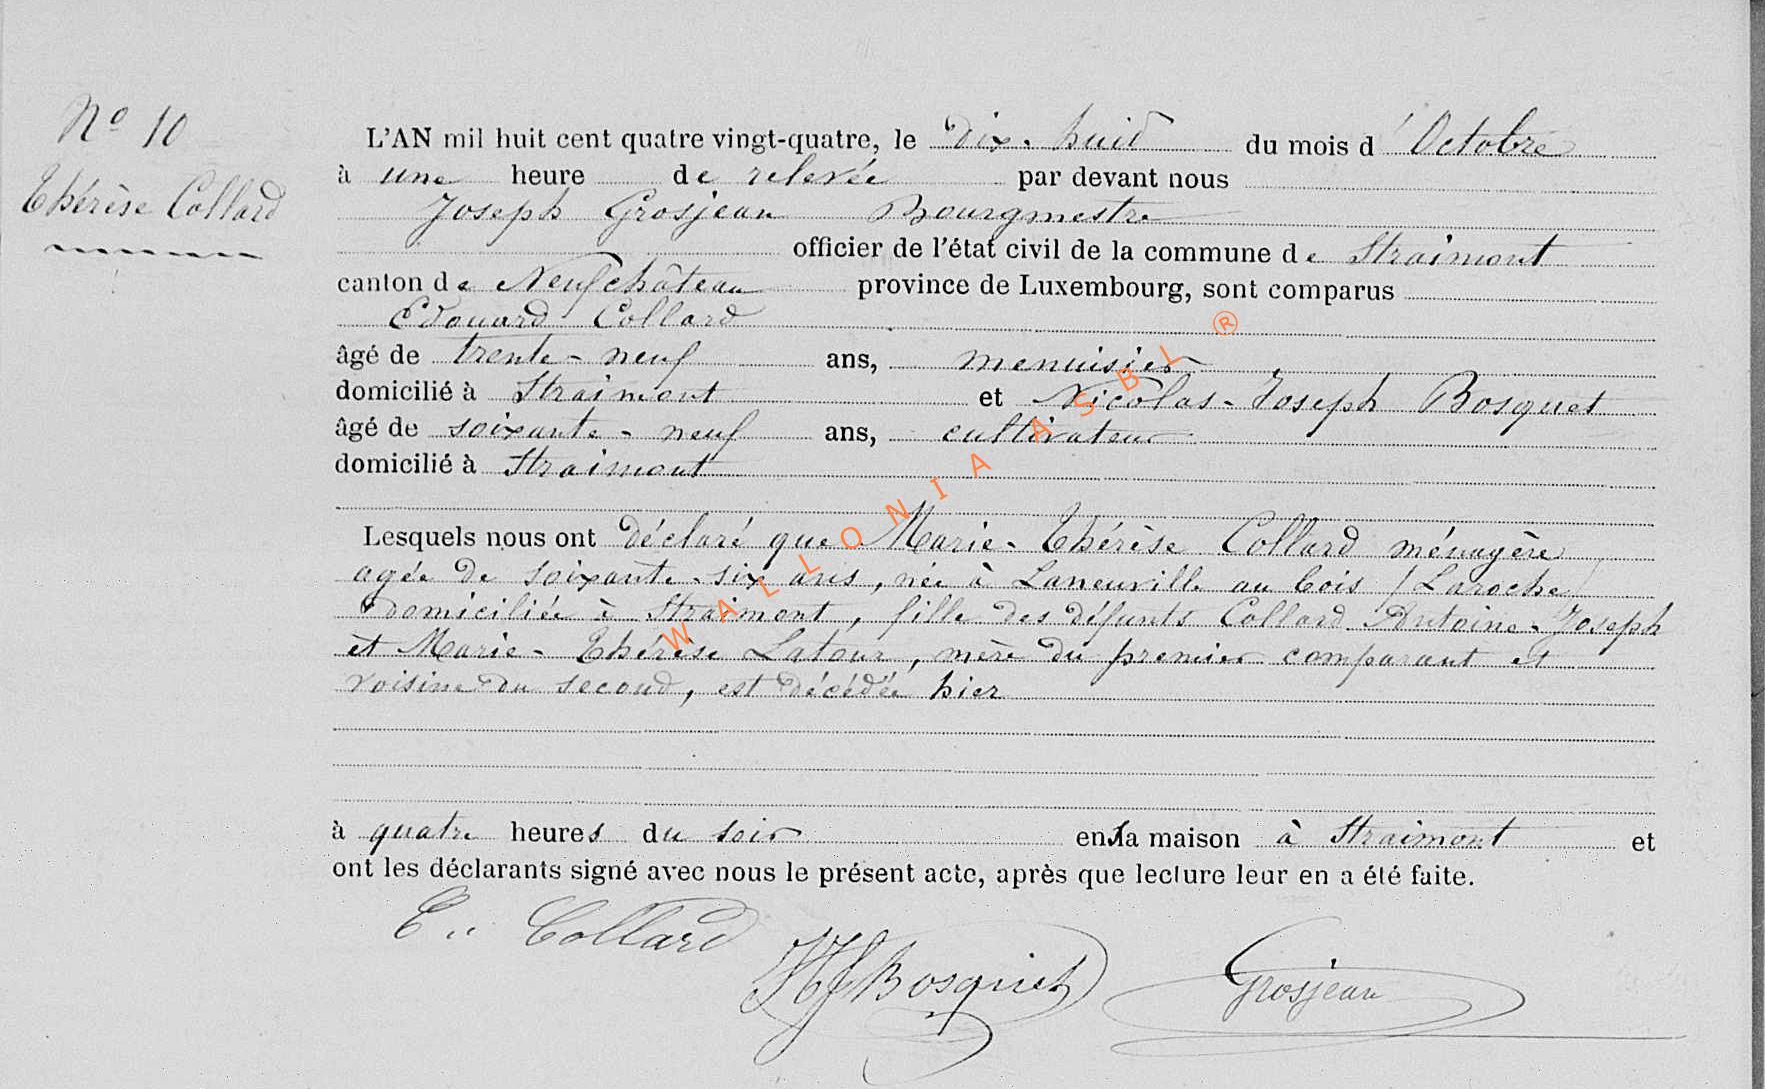 No 10
Thérèse Collard
L'AN mil huit cent quatre vingt-quatre, le dix-huit du mois d'Octobre
à une heure de relevée par devant nous
Joseph Grosjean Bourgmestre
officier de l'état civil de la commune de Straimont
canton de Neufchâteau province de Luxembourg, sont comparus
Edouard Collard
âgé de trente-neuf ans, menuisier
domicilié à Straimont et Nicolas-Joseph Bosquet
âgé de soixante-neuf ans, cultivateur
domicilié à Straimont
Lesquels nous ont déclaré que Marie-Thérèse Collard ménagère
agée de soixante-six ans, née à Laneuville au bois (Laroche)
domiciliée à Straimont, fille des défunts Collard Antoine-Joseph
et Marie-Thérèse Latour, mère du premier comparant et
voisine du second, est décédée hier
à quatre heures du soir en sa maison à Straimont et
ont les déclarants signé avec nous le présent acte, après que lecture leur en a été faite.
E. Collard
NJBosquet
Grosjean
WALLONIA ASBL ®